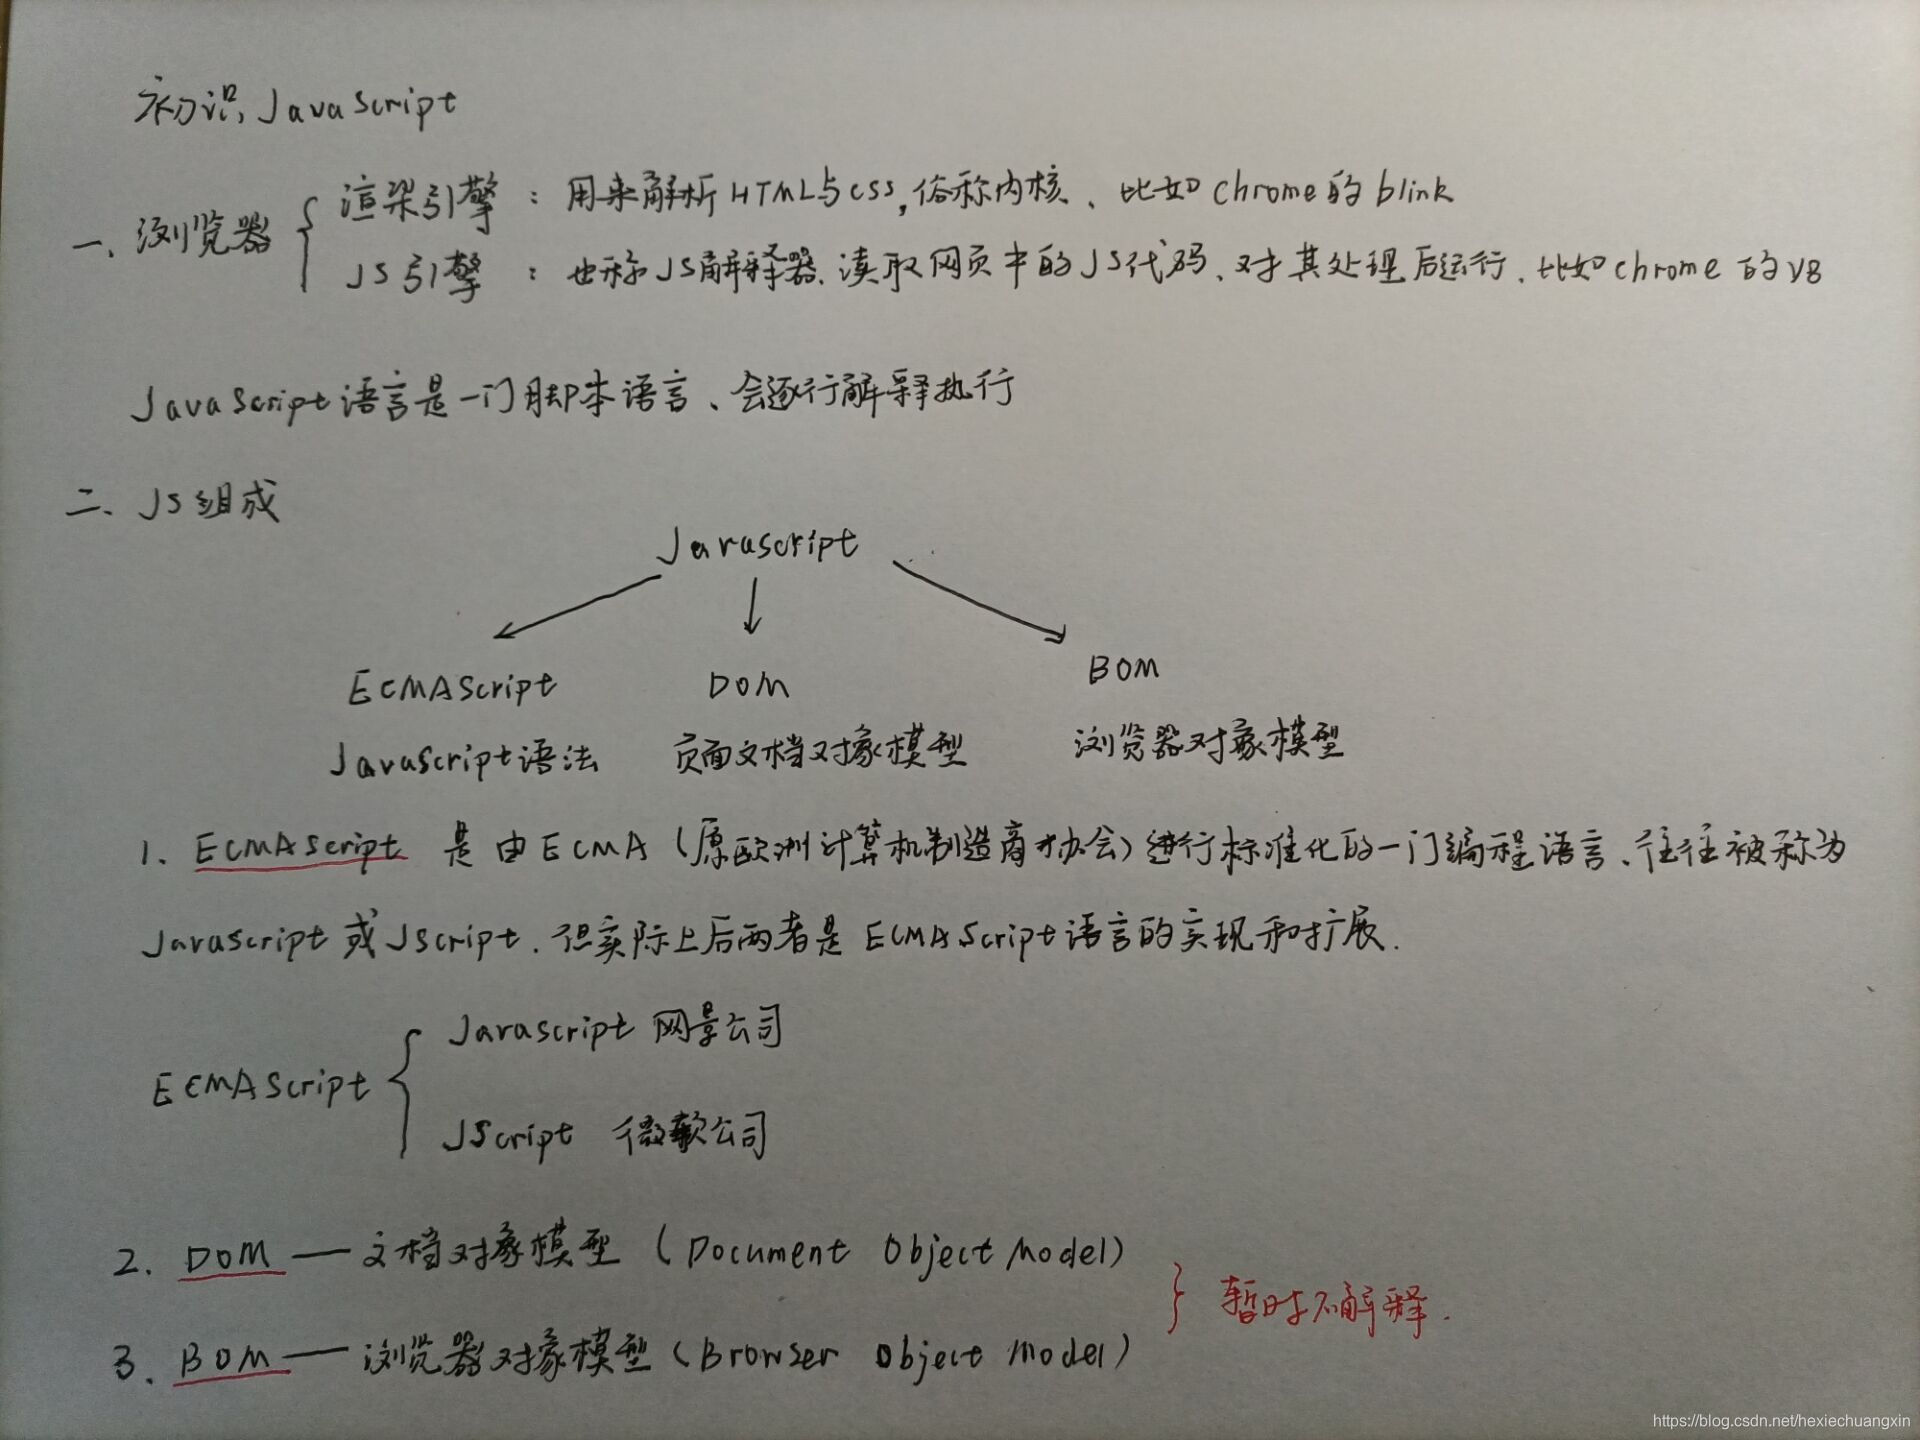 初识JavaScript
一、浏览器 { 渲染引擎：用来解析HTML与CSS,俗称内核、比如chrome的blink
JS引擎：也称JS解释器.读取网页中的JS代码、对其处理后运行.比如chrome的V8
JavaScript语言是一门脚本语言、会逐行解释执行
二、JS组成
Javascript
ECMAScript DOM BOM
Javascript语法 页面文档对象模型 浏览器对象模型
1、ECMAScript 是由ECMA(原欧洲计算机制造商协会)进行标准化的一门编程语言、往往被称为
Javascript或JScript.但实际上后两者是ECMAScript语言的实现和扩展.
ECMAScript { Javascript 网景公司
JScript 微软公司
2. DOM — 文档对象模型 (Document Object Model)
} 暂时不解释.
3、BOM — 浏览器对象模型(Browser Object Model)
https://blog.csdn.net/hexiechuangxin